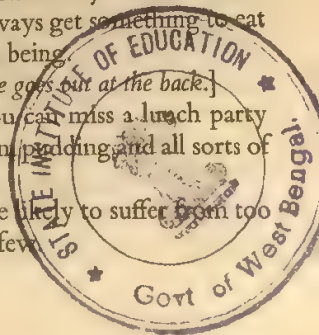 ways get something to eat
being.
e goes out at the back.]
u can miss a lunch party
n pudding and all sorts of
e likely to suffer from too
few
STATE INSTITUTE OF EDUCATION
Govt of West Bengal